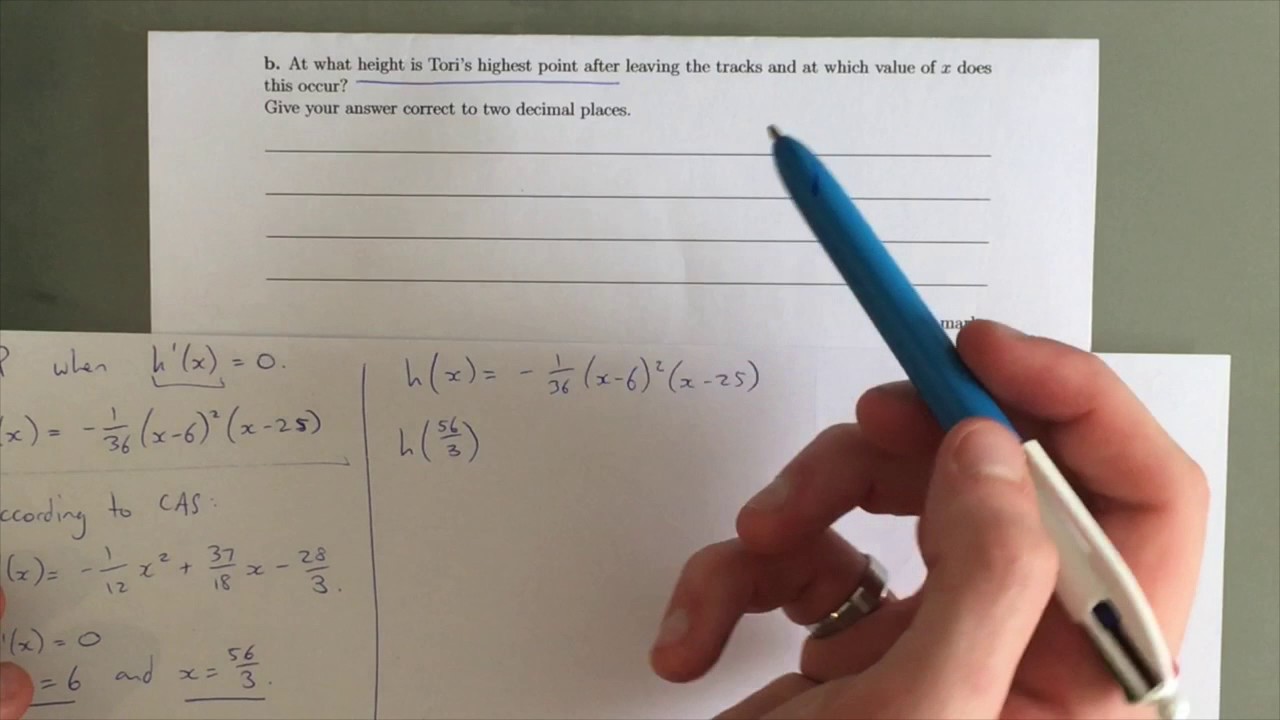 b. At what height is Tori's highest point after leaving the tracks and at which value of x does
this occur?
Give your answer correct to two decimal places.
when h'(x) = 0.
(x) = -1/36 (x-6)²(x-25)
ccording to CAS:
(x) = -1/12 x² + 37/18 x - 28/3.
'(x) = 0
= 6 and x = 56/3.
h(x) = -1/36 (x-6)²(x-25)
h(56/3)